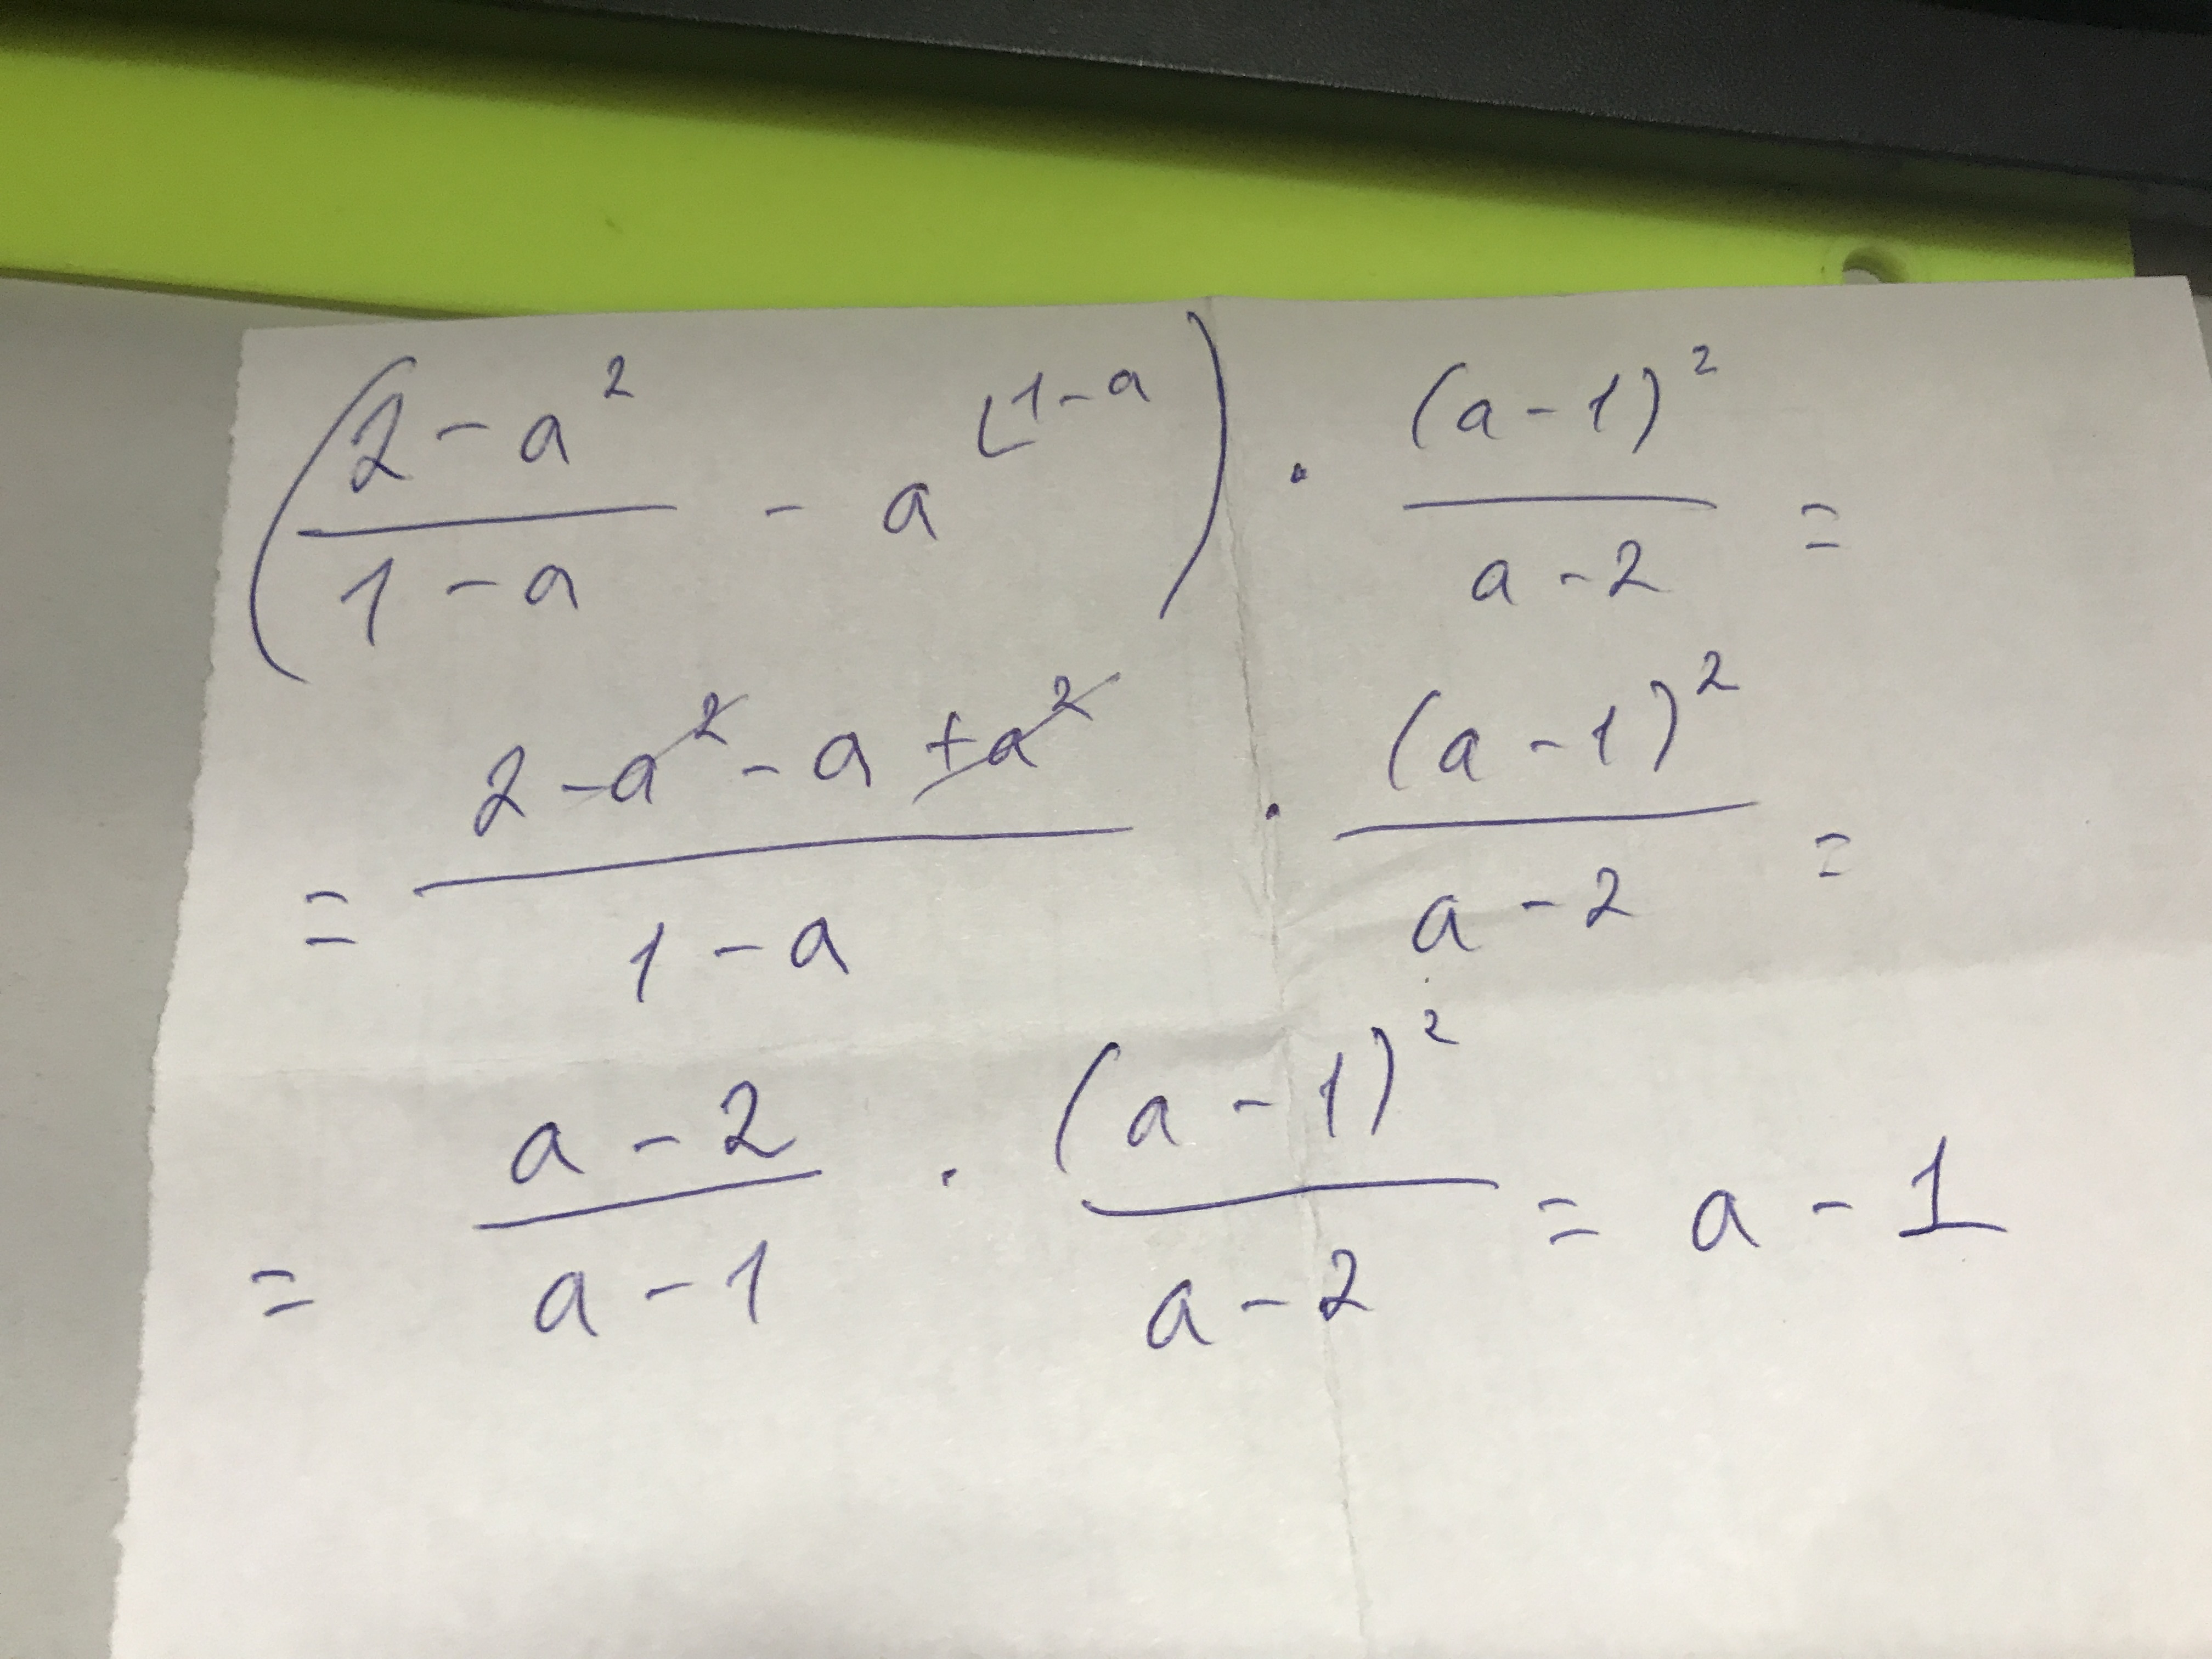 (2-a²/1-a - a⌞1-a) · (a-1)²/a-2 =
= 2-a²-a+a²/1-a · (a-1)²/a-2 =
= a-2/a-1 · (a-1)²/a-2 = a-1